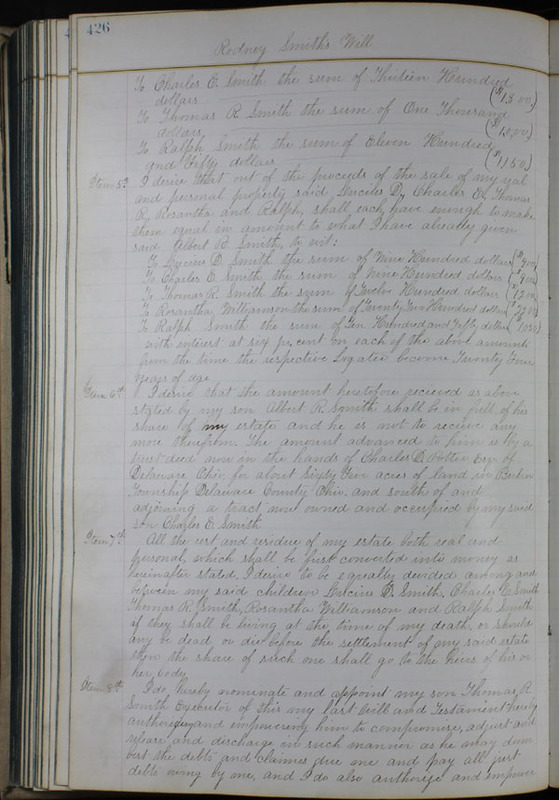 426
Rodney Smith's Will
To Charles E. Smith the sum of Thirteen Hundred
dollars ($1,300)
To Thomas R. Smith the sum of One Thousand
dollars, ($1000)
To Ralph Smith the sum of Eleven Hundred
and Fifty dollars ($1150)
Item 5th I desire that out of the proceeds of the sale of my real
and personal property said Lucius D, Charles E, Thomas
R, Rosantha and Ralph, shall each have enough to make
them equal in amount to what I have already given
said Albert R. Smith, to wit:
To Lucius D. Smith the sum of Nine Hundred dollars ($900)
To Charles E. Smith the sum of Nine Hundred dollars ($900)
To Thomas R. Smith the sum of Twelve Hundred dollars $1200
To Rosantha Williamson the sum of Twenty Two Hundred dollars $2200
To Ralph Smith the sum of Ten Hundred and Fifty dollars 1050
with interest at six pr, cent on each of the above amounts
from the time the respective Legatee become Twenty Five
years of age
Item 6th I desire that the amount heretofore recieved as above
stated by my son Albert R. Smith shall be in full of his
share of my estate and he is not to recieve any
more therefrom. The amount advanced to him is by a
trust deed now in the hands of Charles D. Potter Esq. of
Delaware Ohio, for about Sixty acres of land in
Township Delaware County Ohio. and south of and
adjoining a tract now owned and occupied by my said
son Charles E. Smith
Item 7th All the rest and residue of my estate both real and
personal, which shall be first converted into money as
hereinafter stated, I desire to be equally devided among and
between my said children Lucius D. Smith, Charles E. Smith
Thomas R. Smith, Rosantha Williamson and Ralph Smith
if they shall be living at the time of my death, or should
any be dead or die before the settlement of my said estate
then the share of such one shall go to the heirs of his or
her body
Item 8th I do hereby nominate and appoint my son Thomas R.
Smith Executor of this my last Will and Testament hereby
authorizing and empowering him to compromise, adjust and
release and discharge in such manner as he may deem
best the debts and claims due me and pay all just
debts owing by me, and I do also authorize and empower